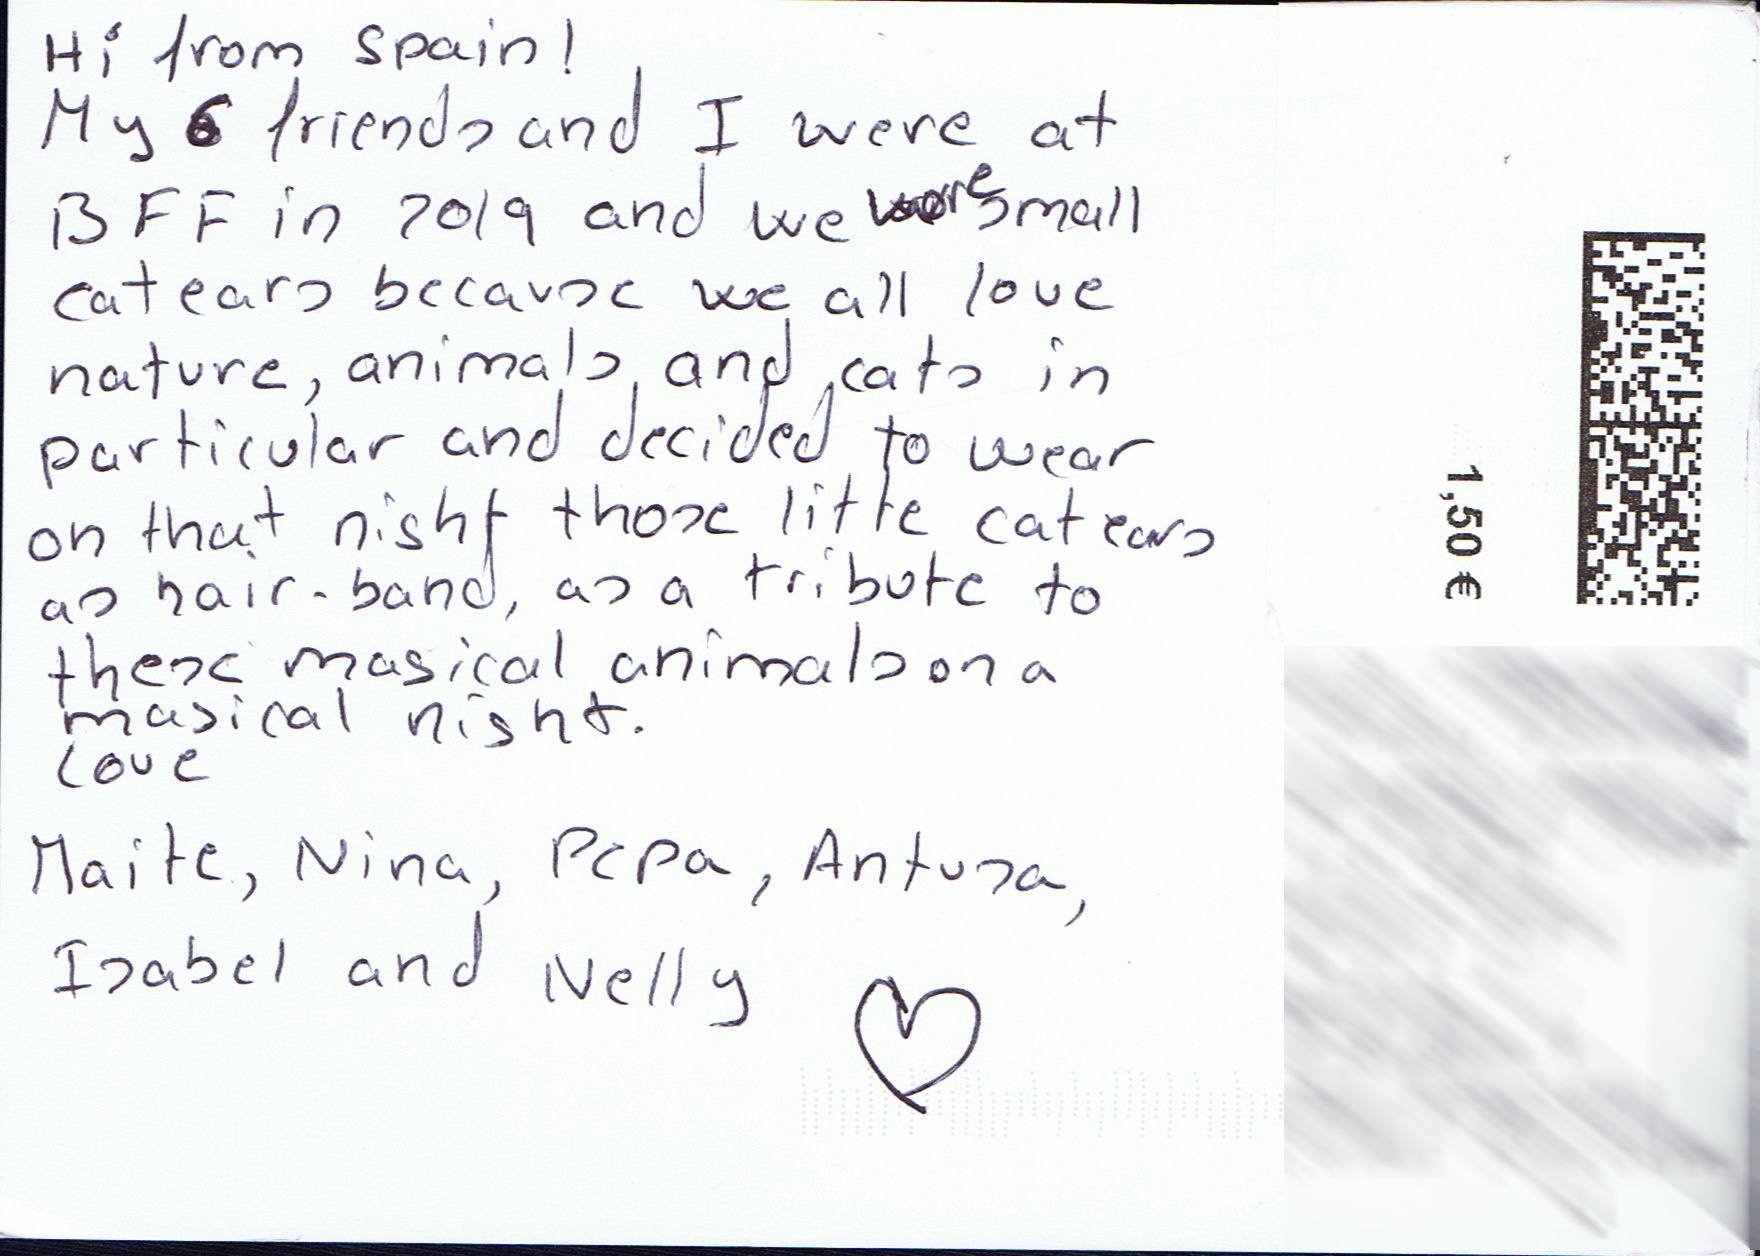 Hi from Spain!
My 6 friends and I were at
BFF in 2019 and we wore small
cat ears because we all love
nature, animals, and cats in
particular and decided to wear
on that night those litte cat ears
as hair-band, as a tribute to
these magical animals on a
magical night.
Love
Maite, Nina, Pepa, Antusa,
Isabel and Nelly
1,50 €